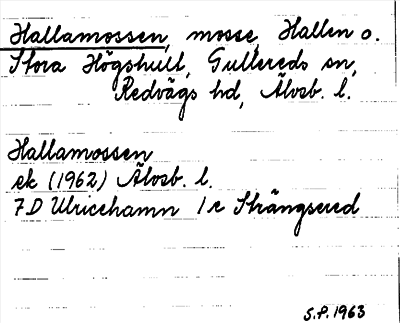 Hallamossen, mosse, Hallen o.
Stora Högshult, Gullereds sn,
Redvägs hd, Älvsb. l.
Hallamossen
ek (1962) Älvsb. l.
7D Ulricehamn 1e Strängsered
S.P. 1963